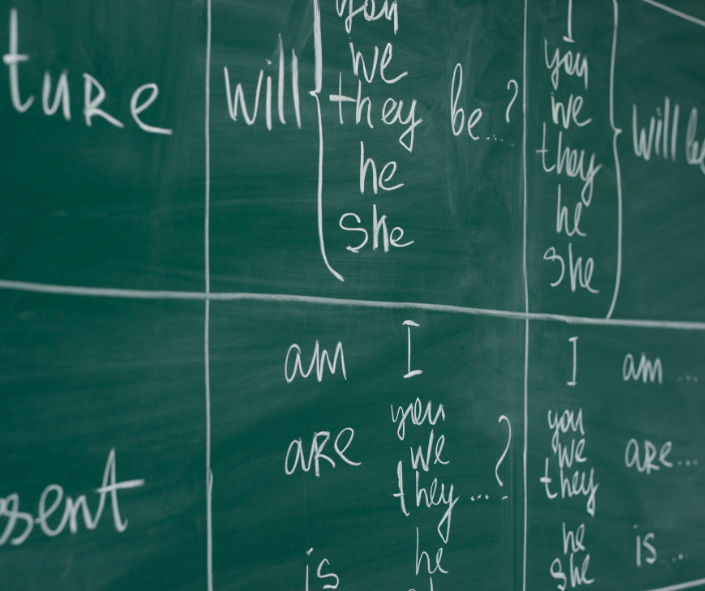 ture
will
you
we
they
he
she
be...?
I
you
we
they
he
she
will be
sent
am I
are
you
we
they
...?
is
he
I am ...
you
we
they
are...
he
she
is...